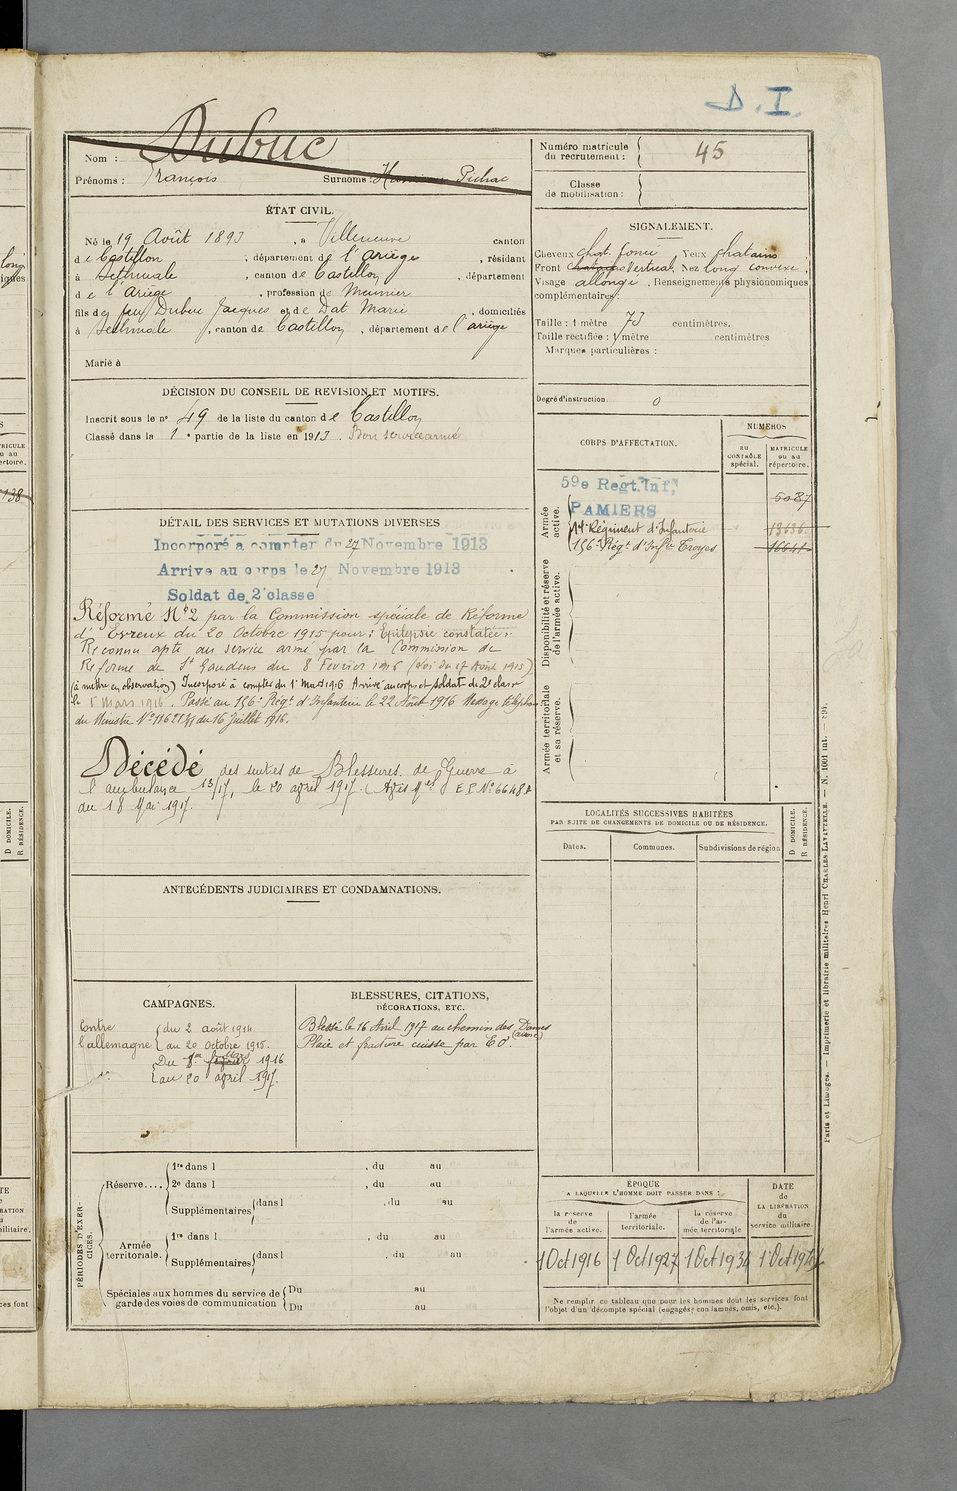 D. I.
Nom : Dubuc
Prénoms : François Surnoms :
Numéro matricule du recrutement : 45
Classe de mobilisation :
ÉTAT CIVIL.
Né le 19 Août 1893, à Villeneuve canton
de Castillon, département de l'Ariège, résidant
à, canton de Castillon, département
de l'Ariège, profession de Meunier
fils de feu Dubuc Jacques et de Dat Marie, domiciliés
à, canton de Castillon, département de l'Ariège
Marié à
SIGNALEMENT.
Cheveux chat. foncé Yeux chatains
Front Vertical, Nez long convexe,
Visage allongé. Renseignements physionomiques
complémentaires:
Taille : 1 mètre 73 centimètres.
Taille rectifiée : 1 mètre centimètres
Marques particulières :
Degré d'instruction. 0
DÉCISION DU CONSEIL DE REVISION ET MOTIFS.
Inscrit sous le n° 49 de la liste du canton de Castillon
Classé dans la 1e partie de la liste en 1913. Bon service armé
CORPS D'AFFECTATION.
NUMÉROS
au CONTRÔLE spécial.
MATRICULE ou au répertoire.
Armée active.
59e Regt. Inf,
PAMIERS 5087
14e Régiment d'Infanterie 13636
156e Régt d'Infie Troyes 16641
Disponibilité et réserve de l'armée active.
Armée territoriale et sa réserve.
DÉTAIL DES SERVICES ET MUTATIONS DIVERSES
Incorporé à compter du 27 Novembre 1913
Arrivé au corps le 27 Novembre 1913
Soldat de 2e classe
Réformé N°2 par la Commission spéciale de Réforme
d'Evreux du 20 Octobre 1915 pour : Epilepsie constatée.
Reconnu apte au service armé par la Commission de
Réforme de St Gaudens du 8 Février 1916 (Loi du 17 Août 1915)
(à mettre en observation) Incorporé à compter du 1er Mars 1916 Arrivé au corps et soldat de 2e classe
le 1er Mars 1916. Passé au 156e Régt d'Infanterie le 22 Août 1916 Message téléphoné
du Ministre N° du 16 Juillet 1916.
Décédé des suites de Blessures de Guerre à
l'ambulance 13/17, le 20 avril 1917. (Avis Mel E.P. N° 6648
du 18 Mai 1917.
LOCALITÉS SUCCESSIVES HABITÉES
PAR SUITE DE CHANGEMENTS DE DOMICILE OU DE RÉSIDENCE.
Dates. Communes. Subdivisions de région
D DOMICILE.
R RÉSIDENCE.
ANTÉCÉDENTS JUDICIAIRES ET CONDAMNATIONS.
CAMPAGNES.
Contre l'allemagne
du 2 août 1914
au 20 octobre 1915.
Du 1er Mars 1916
au 20 avril 1917.
BLESSURES, CITATIONS,
DÉCORATIONS, ETC.
Blessé le 16 Avril 1917 au chemin des Dames
(Aisne)
Plaie et fracture cuisse par E O.
PÉRIODES D'EXERCICES.
Réserve....
1re dans l , du au
2e dans l , du au
Supplémentaires dans l , du au
Armée territoriale.
1re dans l , du au
Supplémentaires dans l , du au
Spéciales aux hommes du service de garde des voies de communication
Du au
Du au
ÉPOQUE
A LAQUELLE L'HOMME DOIT PASSER DANS :
la réserve de l'armée active.
l'armée territoriale.
la réserve de l'armée territoriale
DATE de LA LIBÉRATION du service militaire
1 Oct 1916 1 Oct 1927 1 Oct 1934
Ne remplir ce tableau que pour les hommes dont les services font
l'objet d'un décompte spécial (engagés, condamnés, omis, etc.).
Paris et Limoges. — Imprimerie et librairie militaires Henri CHARLES-LAVAUZELLE. — N. 1001 int. — 894.